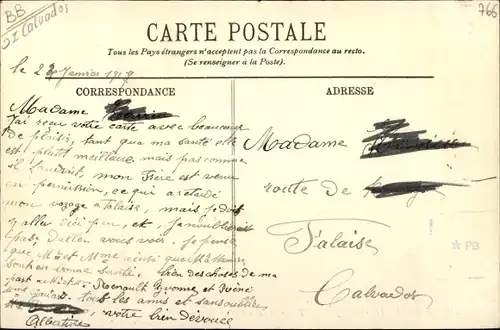 BB
DI Calvados
766
CARTE POSTALE
Tous les Pays étrangers n'acceptent pas la Correspondance au recto.
(Se renseigner à la Poste).
le 22 Janvier 1917
CORRESPONDANCE
ADRESSE
Madame
J'ai reçu votre carte avec beaucoup
de plaisir, tant que ma santé elle
est plutôt meilleure mais pas comme
il faudrait, mon Frère est venu
en permission, ce qui a retardé
mon voyage à Falaise, mais je dois
y aller d'ici peu, et
pas d'aller vous voir. Je pense
que Mr et Mme ainsi que
sont en bonne santé, bien des choses de ma
part à Renault Yvonne et Réné
tous les amis et sans oublier
votre bien dévouée
Albertine
Madame
route de
Falaise
Calvados
PB